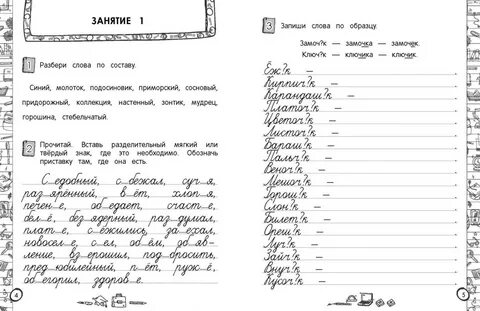 ЗАНЯТИЕ 1
1 Разбери слова по составу.
Синий, молоток, подосиновик, приморский, сосновый,
придорожный, коллекция, настенный, зонтик, мудрец,
горошина, стебельчатый.
2 Прочитай. Вставь разделительный мягкий или
твёрдый знак, где это необходимо. Обозначь
приставку там, где она есть.
С_едобный, с_бежал, суч_я,
раз_ярённый, в_ёт, хлоп_я,
печен_е, об_едает, счаст_е,
бел_ё, без_ядерный, раз_думал,
плат_е, с_ёжились, за_ехал,
новосел_е, с_ел, об_ём, об_яв-
ление, вз_ерошил, под_бросить,
пред_юбилейный, п_ёт, руж_ё,
об_егорил, здоров_е.
4
3 Запиши слова по образцу.
Замоч?к – замочка – замочек.
Ключ?к – ключика – ключик.
Ёж?к –
Кирпич?к –
Карандаш?к –
Платоч?к –
Цветоч?к –
Листоч?к –
Бараш?к –
Пальч?к –
Веноч?к –
Мешоч?к –
Горош?к –
Слон?к –
Билет?к –
Ореш?к –
Луч?к –
Зайч?к –
Внуч?к –
Кусоч?к –
5